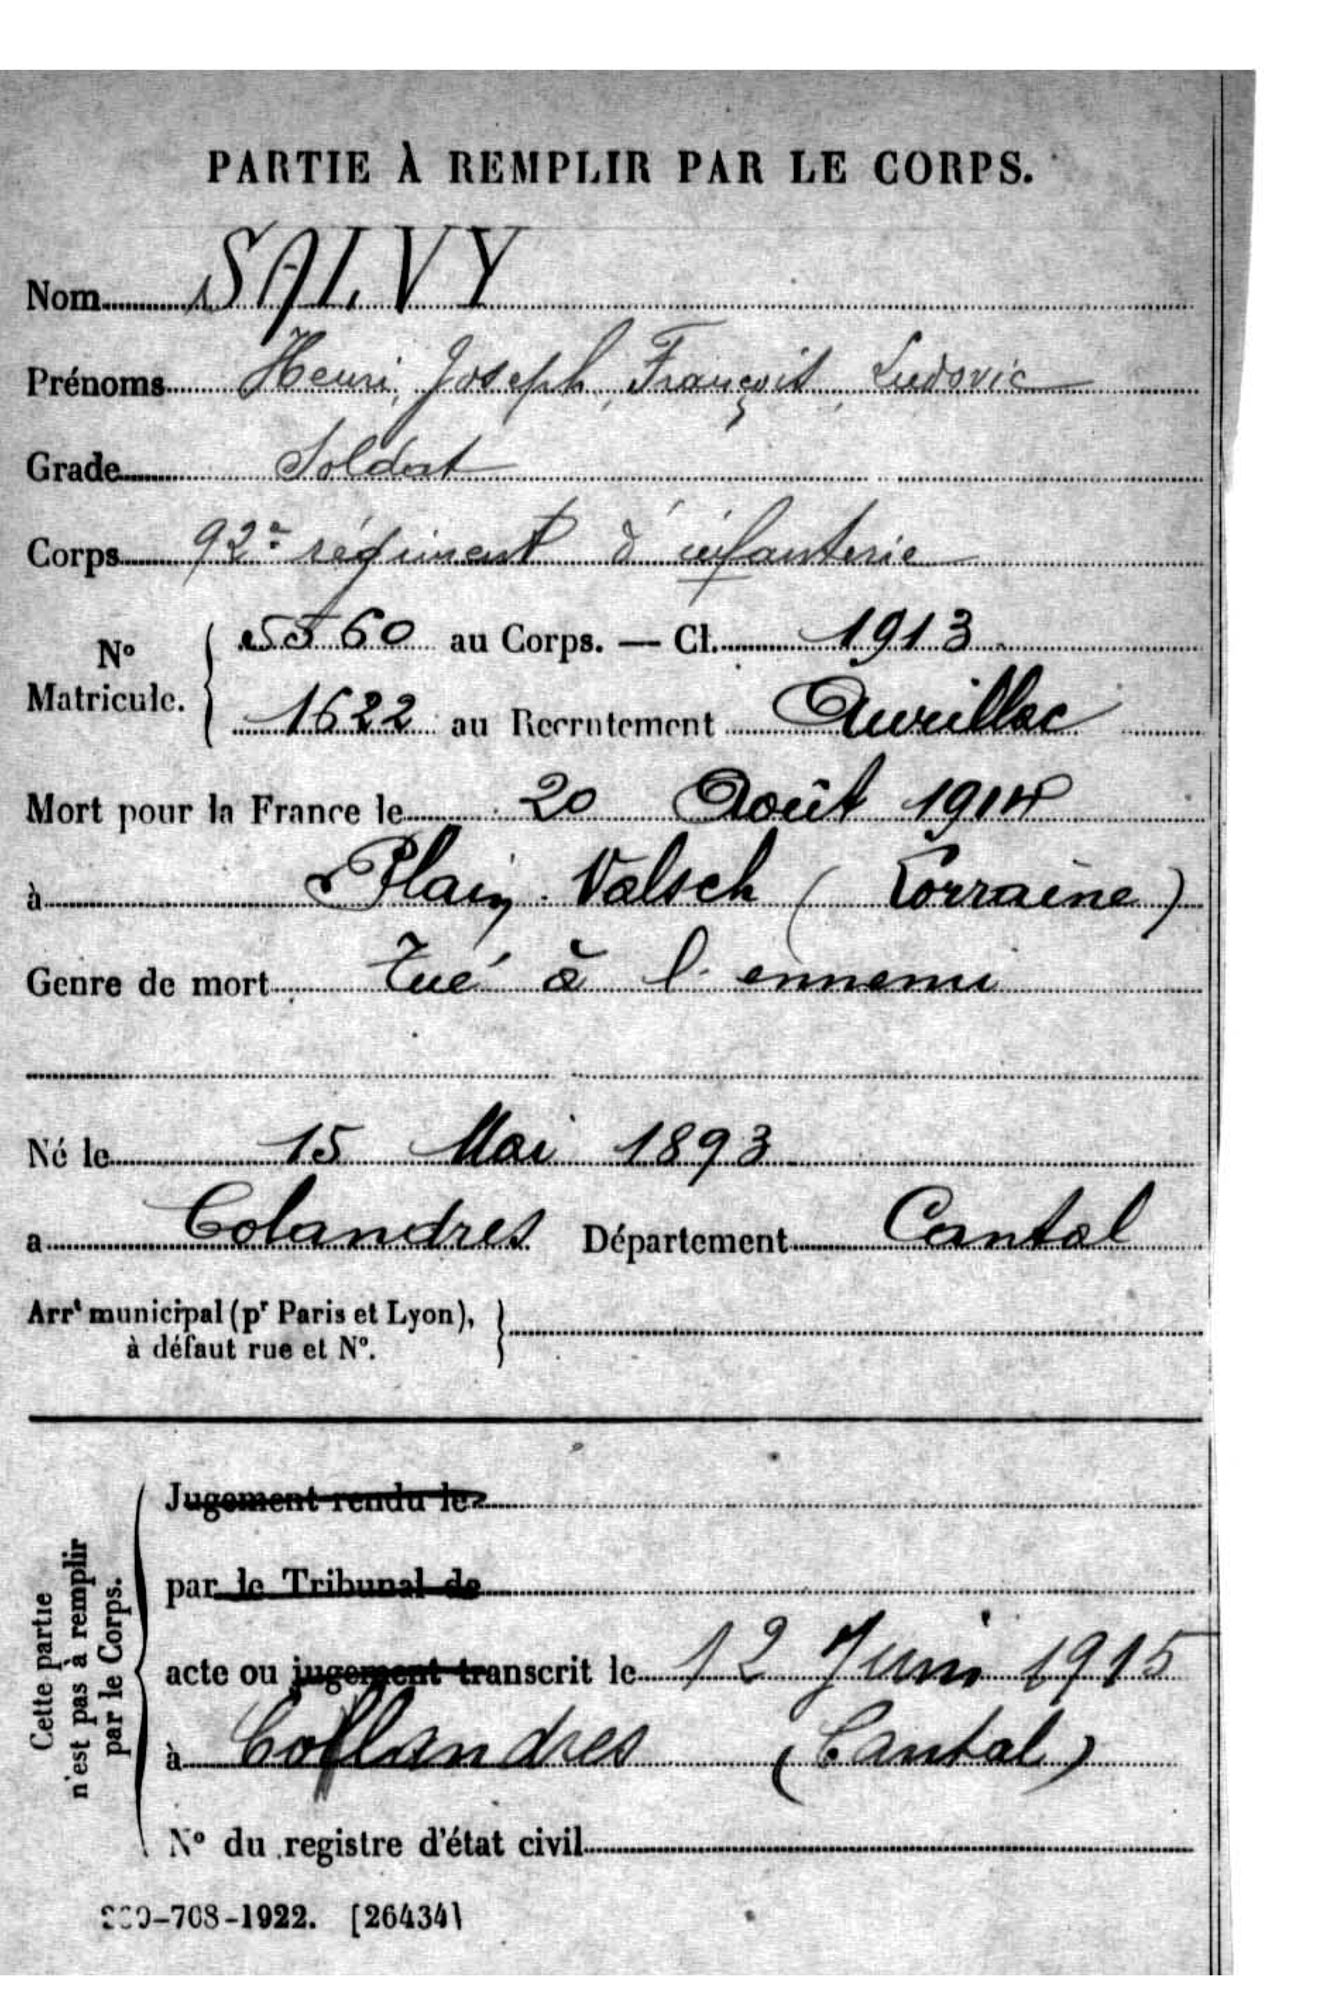 PARTIE À REMPLIR PAR LE CORPS.
Nom SALVY
Prénoms Henri, Joseph, François, Ludovic
Grade Soldat
Corps 92e régiment d'infanterie
N° Matricule. { 5560 au Corps. — Cl. 1913
1622 au Recrutement Aurillac
Mort pour la France le 20 Août 1914
à Plain-Valsch (Lorraine)
Genre de mort Tué à l'ennemi
Né le 15 Mai 1893
a Colandres Département Cantal
Arrt municipal (pr Paris et Lyon),
à défaut rue et N°.
Cette partie
n'est pas à remplir
par le Corps.
Jugement rendu le
par le Tribunal de
acte ou jugement transcrit le 12 Juin 1915
à Collandres (Cantal)
N° du registre d'état civil
-708-1922. [26434]